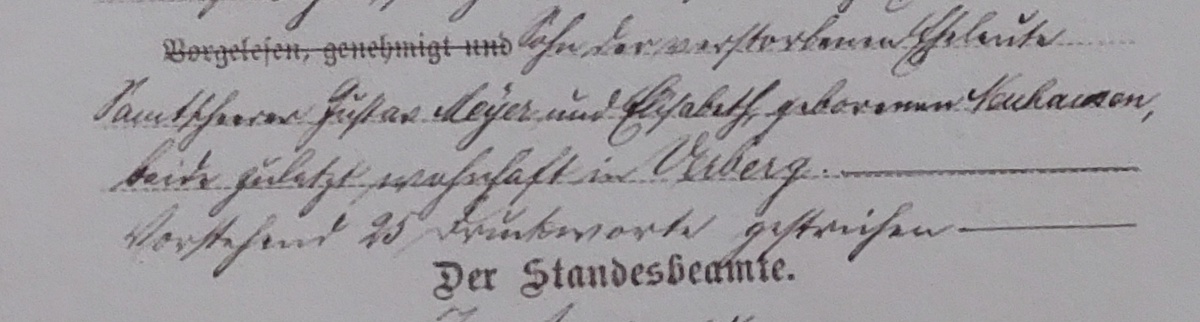 Vorgelesen, genehmigt und Sohn der verstorbenen Eheleute
Samtscherer Gustav Meyer und Elisabeth, geborenen Neuhausen,
beide zuletzt wohnhaft in Verberg.
Vorstehend 25 Druckworte gestrichen
Der Standesbeamte.